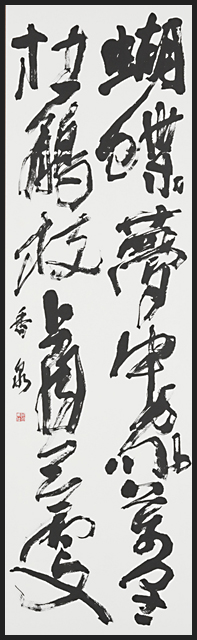 蝴蝶夢中家萬里
杜鵑枝上月三更
香泉